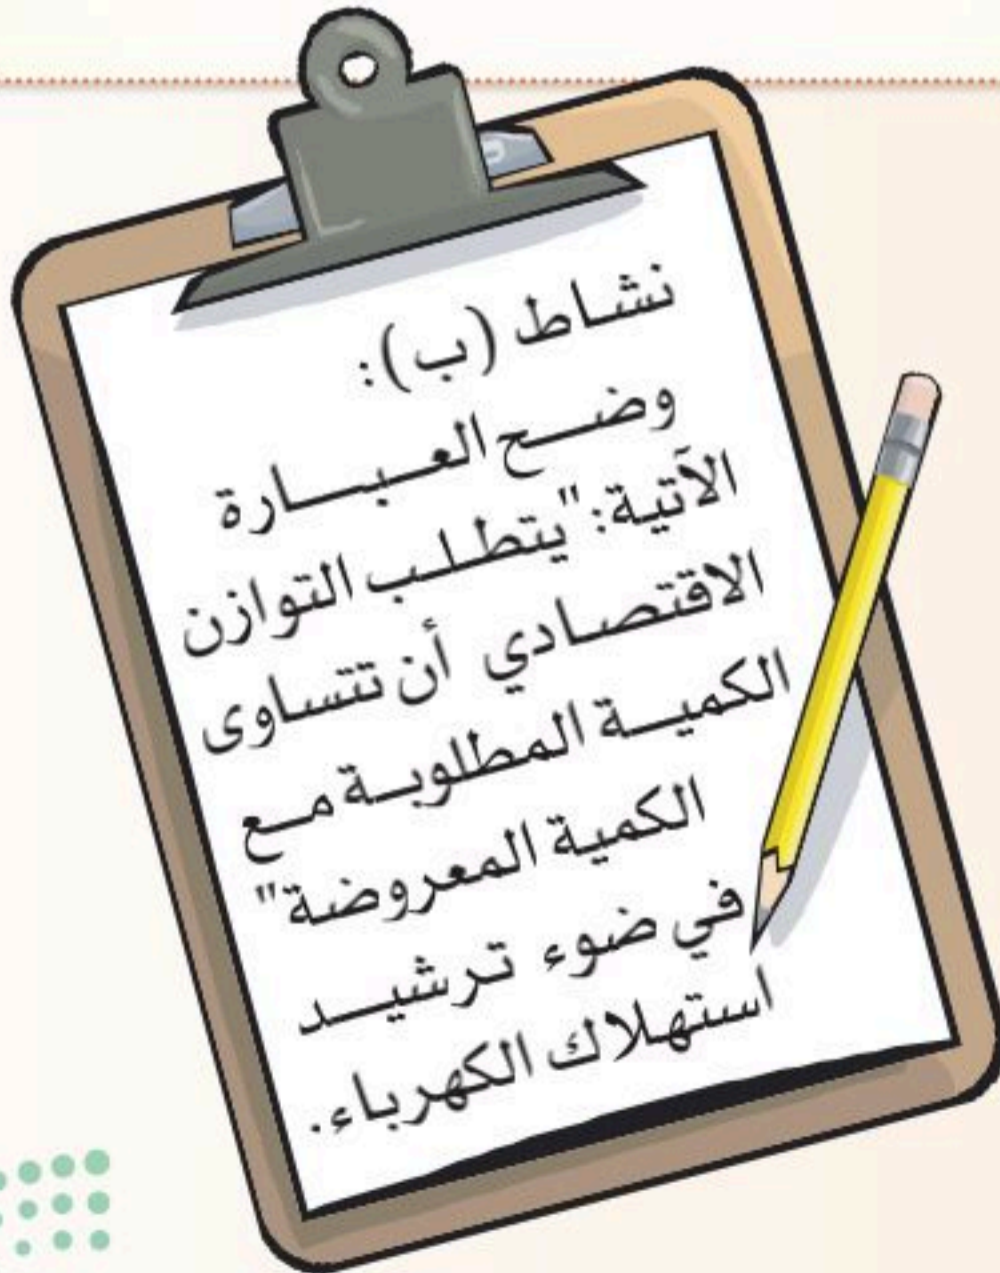 نشاط (ب):
وضح العبارة
الآتية: "يتطلب التوازن
الاقتصادي أن تتساوى
الكمية المطلوبة مع
الكمية المعروضة"
في ضوء ترشيد
استهلاك الكهرباء.